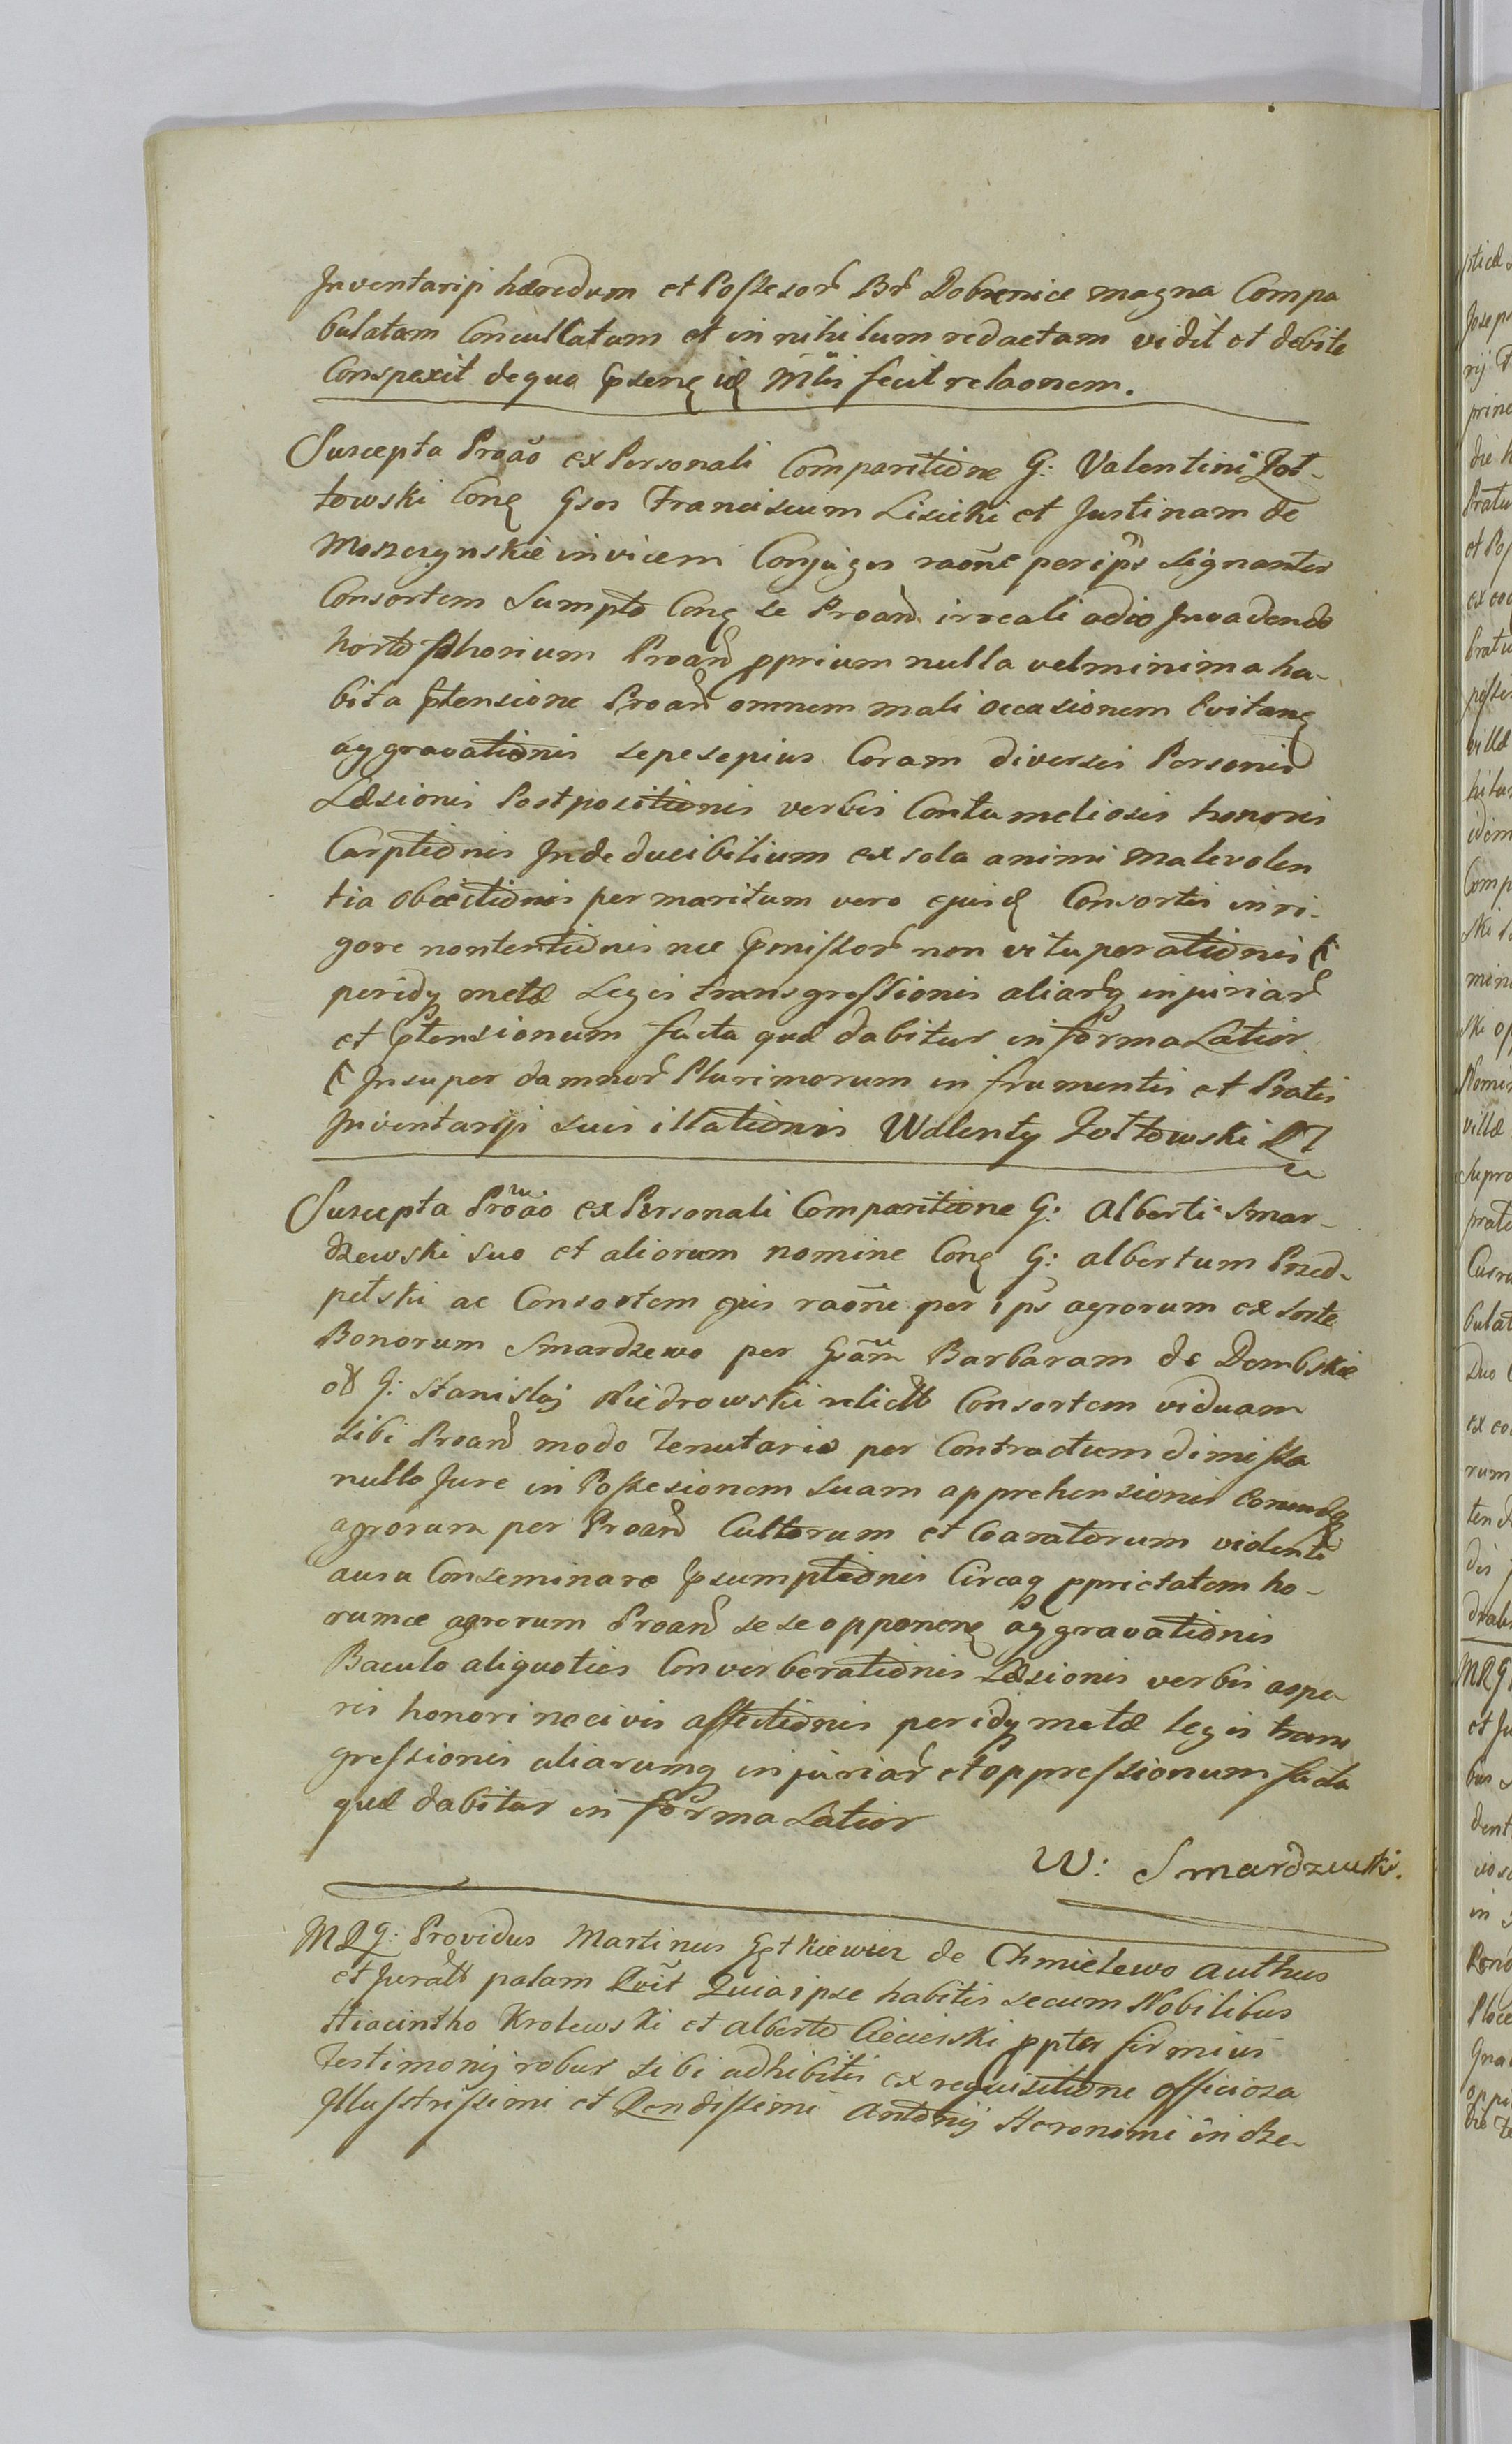 Inventarij hæredum et Possesor Br Dobrenice magna Compa
bulatam Conculcatam et in nihilum redactam vidit et debite
Conspexit de quo pseng id Mlis fecit relaonem.
Suscepta Proāo ex Personali Comparitione G: Valentini Zoł-
towski Cong Gsos Franciscum Lisicki et Justinam de
Moszczynskie invicem Conjuges raōne per ips signanter
Consortem Sumpto Cong se Proan irreali adio Invadendo
horto Proan pprium nulla vel minima ha-
bita ptensione Proan omnem mali occasionem Evitang
aggravationis sepesepius Coram diversis Personis
Læsionis Postpositionis verbis Contumeliosis honoris
Carptionis Inde ducibilium ex sola animi malevolen
tia obiectionis per maritum vero ejusd Consortis in ri-
gore non tentionis nec pmissor non vituperationis
peridq metæ Legis transgressionis aliarq injuriar
et ptensionum facta quæ dabitur in forma Latior
Insuper damnor Plurimorum in frumentis et Pratis
Inventarij suis illationis Walenty Zołtowski
Suscepta Proāo ex Personali Comparitione G: Alberti Smar-
dzewski suo et aliorum nomine Cong G: albertum Przed-
pełski ac Consortem ejus raōne per ips agrorum ex sorte
Bonorum Smardzewo per Gām Barbaram de Dembskie
G: Stanislai Niedrowski relict Consortem viduam
sibi Proan modo Tenutario per Contractum dimissa
nullo Jure in Possesionem suam apprehensionis Eorumdq
agrorum per Proan Cultorum et Coaratorum violento
ausu Conseminare psumptionis Circaq pprietatem ho-
rumce agrorum Proan se se opponeng aggravationis
Baculo aliquoties Converberationis Læsionis verbis aspe
ris honori nocivis affectionis peridq metæ legis trans
gressionis aliarumq injuriar et oppressionum facta
quæ dabitur in forma Latior
W: Smardzewski.
MRG: Providus Martinus Getkiewicz de Chmielewo authus
et Juratt palam Rcōit Quia ipse habitis secum Nobilibus
Hiacintho Krolewski et alberto Ciecierski ppter firmius
Testimonij robur sibi adhibitis ex requisitione officiosa
Illustrissimi et Rendissimi Antonij Heronimi in Dze-